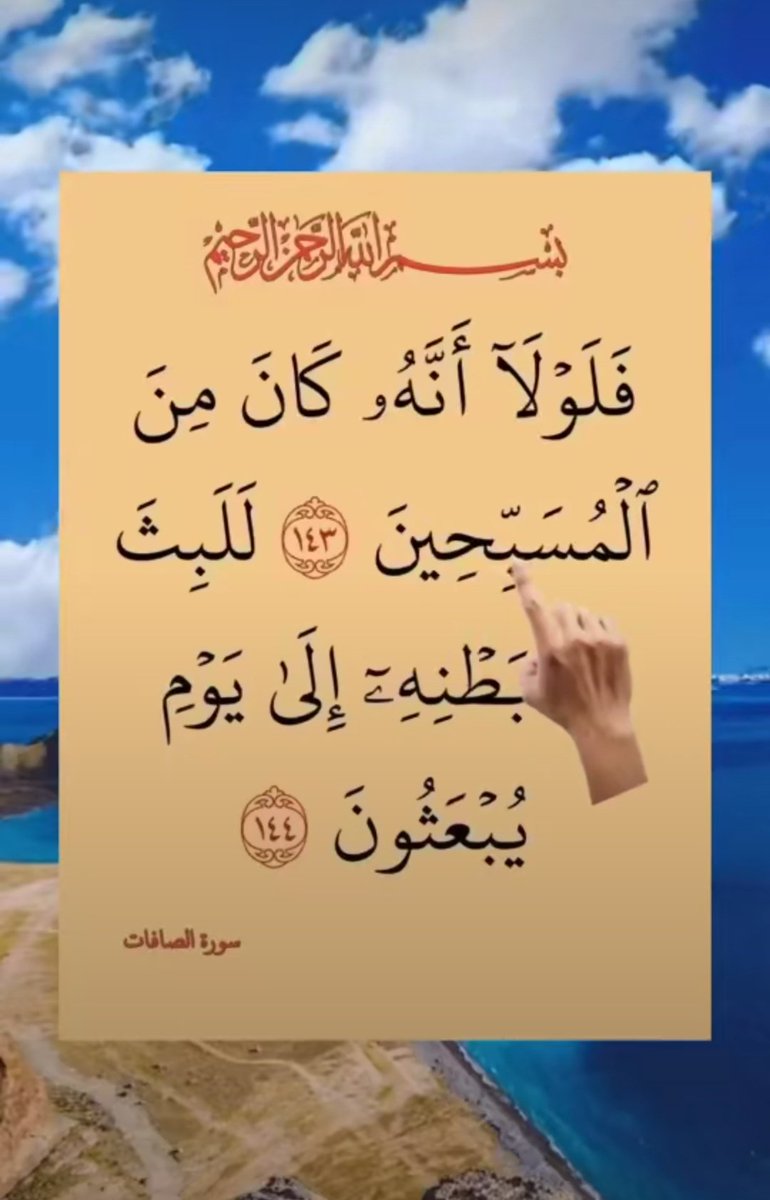 بِسْمِ اللَّهِ الرَّحْمَنِ الرَّحِيمِ
فَلَوۡلَآ أَنَّهُۥ كَانَ مِنَ
ٱلۡمُسَبِّحِينَ ١٤٣ لَلَبِثَ
بَطۡنِهِۦٓ إِلَىٰ يَوۡمِ
يُبۡعَثُونَ ١٤٤
سورة الصافات